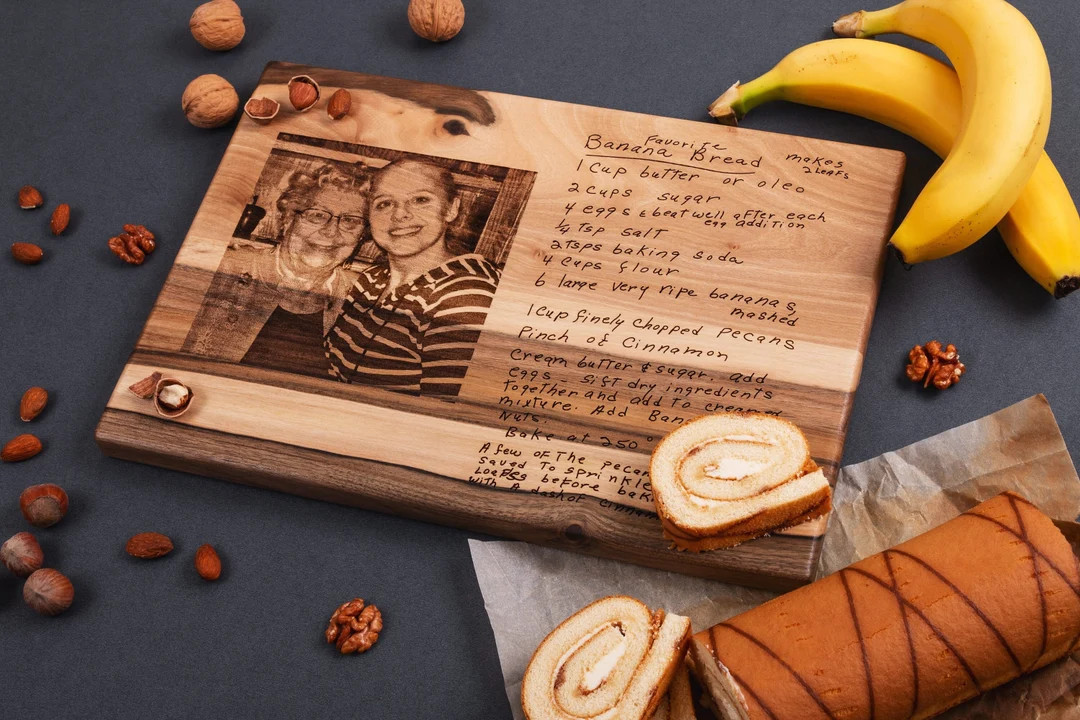 Favorite
Banana Bread makes
2 Loafs
1 Cup butter or oleo
2 Cups sugar
4 eggs & beat well after each
egg addition
1/4 Tsp salt
2 Tsps baking soda
4 Cups flour
6 large very ripe bananas,
mashed
1 Cup finely chopped pecans
Pinch of Cinnamon
Cream butter & sugar. add
eggs - Sift dry ingredients
together and add to creamed
mixture. Add Ban
Nuts.
Bake at 250°
A few of The pecan
saved To sprinkle
Loaves before bak
with A dash of cinnam